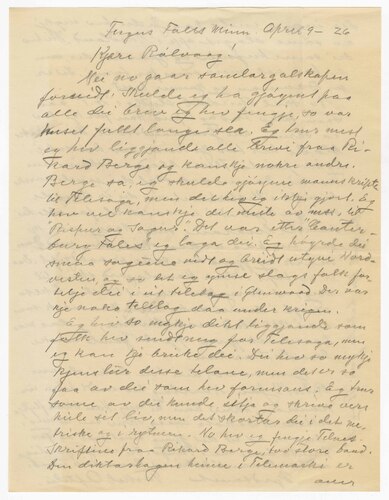 Fergus Falls Minn April 9 - 26
Kjære Rölvaag!
Nei no gaar samlargalskapen
forvidt. Skulde eg ha gjöymt paa
alle dei brev eg hev fengje, so var
huset fullt lange sea. Eg trur mest
eg hev liggjande alle brevi fraa Ri-
kard Berge og kanskje nokre andre.
Berge sa, eg skulde gjöyme manuskripti
til Telesoga, men det hev eg ikkje gjort. Eg
hev vel kanskje det meste av mst. til
og Sogur. Det var etter Canter-
bury Tales eg laga dei. Eg höyrde dei
smaa sogurne vidt og breidt utyve Nord-
vesten og so let eg ymse slags folk for-
telje dei i eit telelag i Glenwood. Der var
kje noko telelag daa under krigen.
Eg hev so mykje dikt liggjande som
folk hev sendt meg for Telesoga, men
eg kan kje bruke dei. Dei hev so mykje
kjenslur desse telane, men det er so
faa av dei som hev formsans. Eg trur
some av dei kunde ikkje aa skrive vers
kiele sit liv, men det skortar dei i det me-
triske og i rytmen. No hev eg fengje Telnes
Skriftine fraa Rikard Berge, tvo store band.
Den diktarlagen heime i Telemarki er